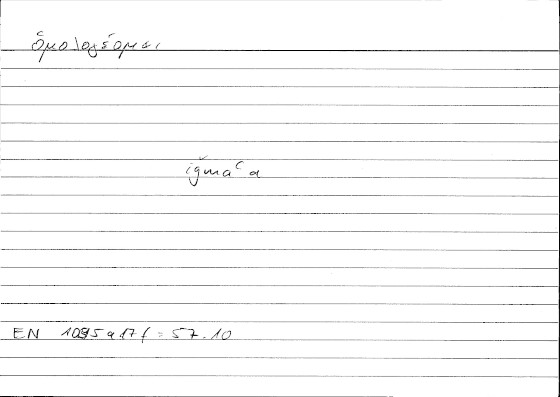 ὁμολογέομαι
iǧmāʿ a
EN 1095a17f = 57.10